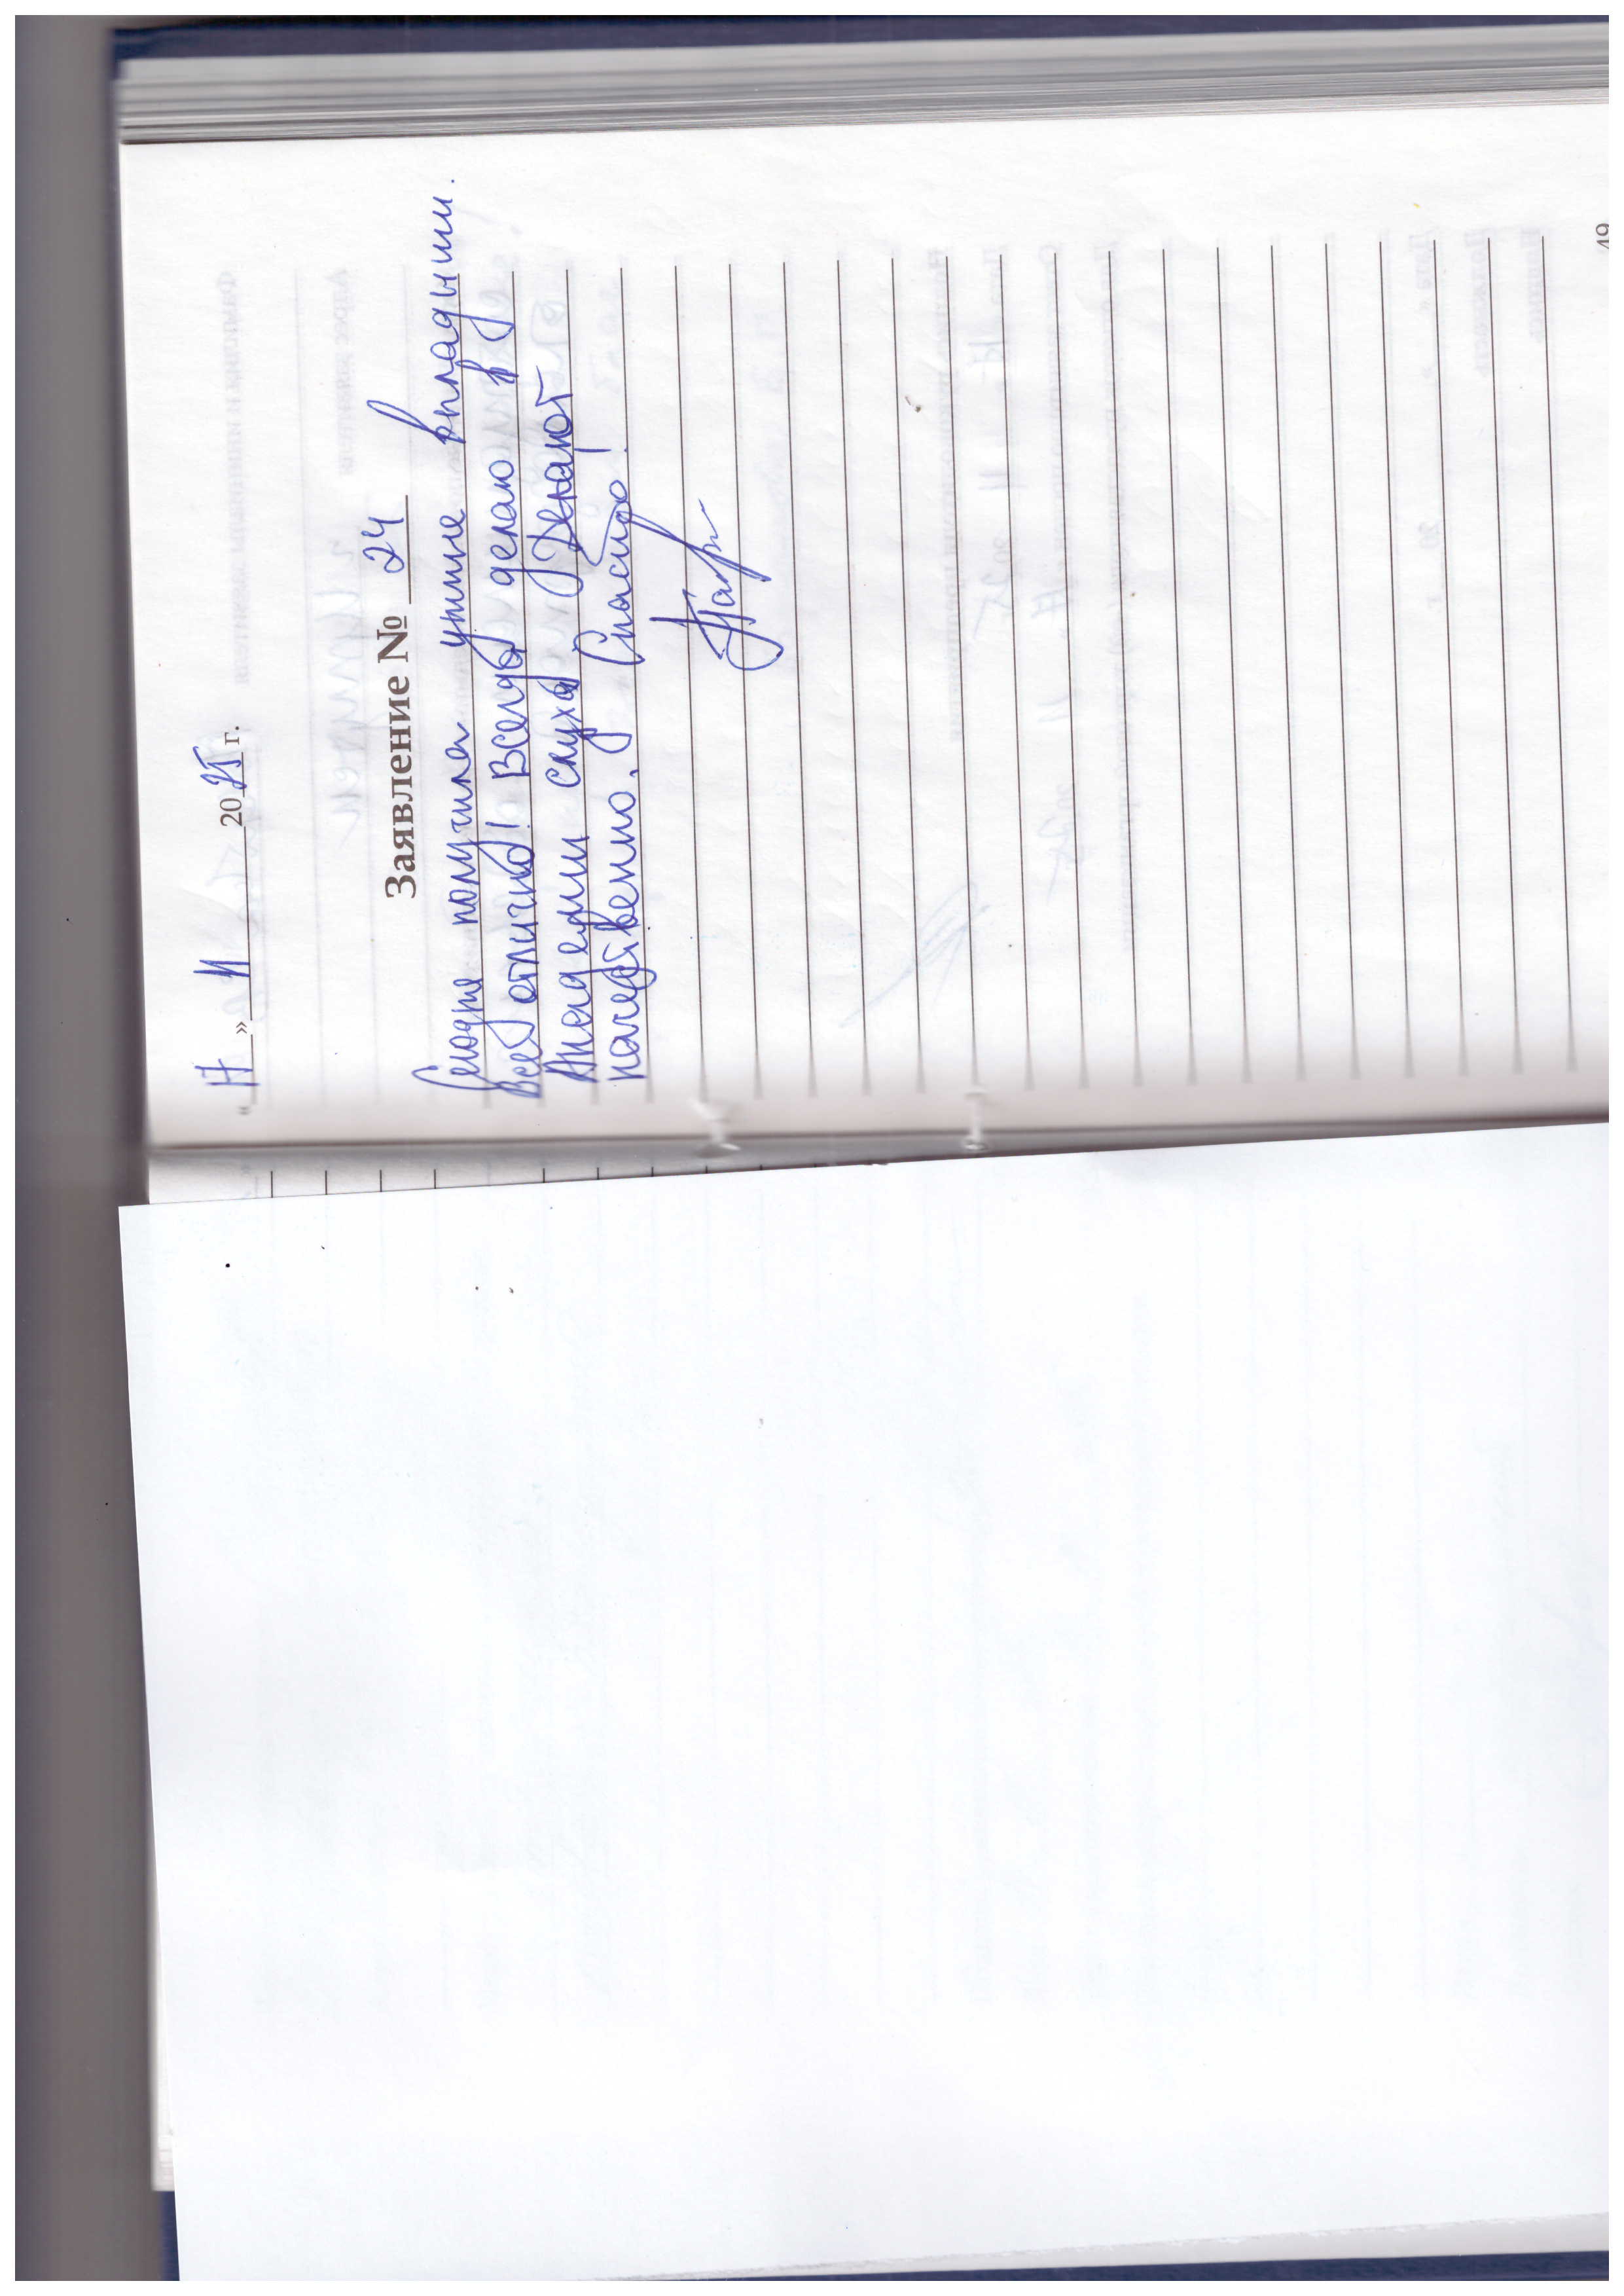 «17» 11 2025 г.
Заявление № 24
Сегодня получила ушные вкладыши.
Всё отлично! Всегда делаю в
Академии слуха. Делают
качественно. Спасибо!
49